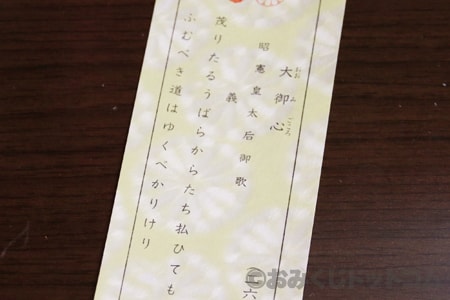 大御心
おおみごころ
昭憲皇太后御歌
義
茂りたるうばらからたち払ひても
ふむべき道はゆくべかりけり
六
おみくじ